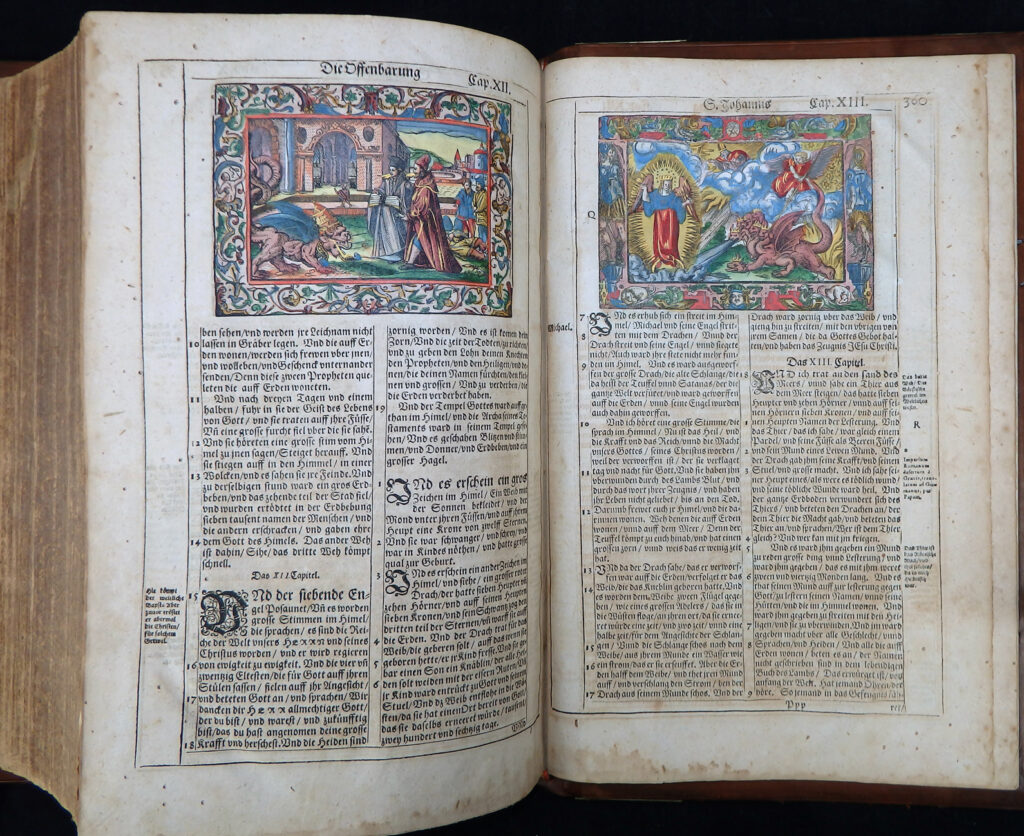 Die Offenbarung
Cap. XII.
ben sehen/ vnd werden jre Leichnam nicht
lassen in Gräber legen. Vnd die auff Er-
den wonen/ werden sich frewen vber jnen/
vnd wolleben/ vnd Geschenck vnternander
senden/ Denn diese zween Propheten que-
leten die auff Erden woneten.
11 Vnd nach dreyen Tagen vnd einem
halben/ fuhr in sie der Geist des Lebens
von Gott/ vnd sie traten auff jhre Füsse/
Vñ eine grosse furcht fiel vber die sie sahẽ.
12 Vnd sie höreten eine grosse stim vom Hi-
mel zu jnen sagen/ Steiget herauff. Vnd
sie stiegen auff in den Himmel/ in einer
13 Wolcken/ vnd es sahen sie jre Feinde. Vnd
zu derselbigen stund ward ein gros Erd-
beben/ vnd das zehende teil der Stad fiel/
vnd wurden ertödtet in der Erdbebung
sieben tausent namen der Menschen/ vnd
die andern erschracken/ vnd gaben ehre
14 dem Gott des Himels. Das ander Weh
ist dahin/ Sihe/ das dritte Weh kömpt
schnell.
Das XII Capitel.
15 VNd der siebende En-
gel Posaunet/ Vñ es worden
grosse Stimmen im Himel/
die sprachen/ es sind die Rei-
che der Welt vnsers HErrn vnd seines
Christus worden/ vnd er wird regieren
16 von ewigkeit zu ewigkeit. Vnd die vier vñ
zwenzig Eltesten/ die für Gott auff jhren
Stülen sassen/ fielen auff jhr Angesicht/
17 vnd beteten Gott an/ vnd sprachen/ Wir
dancken dir HErr allmechtiger Gott/
der du bist/ vnd warest/ vnd zukünfftig
bist/ das du hast angenomen deine grosse
18 Krafft vnd herschest. Vnd die Heiden sind
zornig worden/ Vnd es ist komen dein
Zorn/ Vnd die zeit der Todten/ zu richten/
vnd zu geben den Lohn deinen Knechten
den Propheten/ vnd den Heiligen/ vnd de-
nen/ die deinen Namen fürchten/ den klei-
nen vnd grossen/ Vnd zu verderben/ die
die Erden verderbet haben.
19 Vnd der Tempel Gottes ward auff ge-
than im Himel/ vnd die Archa seines Te-
staments ward in seinem Tempel gese-
hen/ Vnd es geschahen Blitzen vnd stim-
men/ vnd Donner/ vnd Erdbeben/ vnd ein
grosser Hagel.
1 VNd es erschein ein gros
Zeichen im Himel/ Ein Weib mit
der Sonnen bekleidet/ vnd der
Mond vnter jhren Füssen/ vnd auff jhrem
Heupt eine Krone von zwelff Sternen.
2 Vnd sie war schwanger/ vnd schrey/ vnd
war in Kindes nöthen/ vnd hatte grosse
qual zur Geburt.
3 VNd es erschein ein ander Zeichen im
Himel/ vnd siehe/ ein grosser roter
Drach/ der hatte sieben Heupter vñ
zehen Hörner/ vnd auff seinen Heupten
4 sieben Kronen/ vnd sein Schwantz zog den
dritten teil der Sternen/ vñ warff sie auff
die Erden. Vnd der Drach trat für das
Weib/ die geberen solt/ auff das wenn sie
5 geboren hette/ er jr Kind fresse. Vnd sie
gebar einen Son ein Knäblin/ der alle Hei-
den solt weiden mit der eisern Ruten/ Vñ
6 jr Kind ward entrückt zu Gott vnd seinem
Stuel/ Vnd dz Weib entflohe in die Wü-
sten/ da sie hat einen Ort bereit von Gott/
das sie daselbs erneeret würde/ tausent/
zwey hundert vnd sechtzig tage.
Hie kömpt
der weltliche
Bapst: Aber
zuuor tröstet
er abermal
die Christen/
für solchem
Grewel.
S. Johannis
Cap. XIII.
360
Michael.
7 VNd es erhub sich ein streit im Him-
mel/ Michael vnd seine Engel strit-
8 ten mit dem Drachen/ Vnnd der
Drach streit vnd seine Engel/ vnnd siegete
nicht/ Auch ward jhre stete nicht mehr fun-
9 den im Himel. Vnd es ward ausgeworf-
fen der grosse Drach/ die alte Schlange/ die
da heist der Teuffel vnnd Satanas/ der die
gantze Welt verfüret/ vnd ward geworffen
auff die Erden/ vnd seine Engel wurden
auch dahin geworffen.
10 Vnd ich höret eine grosse Stimme/ die
sprach im Himmel/ Nu ist das Heil/ vnd
die Krafft vnd das Reich/ vnnd die Macht
vnsers Gottes/ seines Christus worden/
weil der verworffen ist/ der sie verklaget
11 tag vnd nacht für Gott. Vnd sie haben jhn
vberwunden durch des Lambs Blut/ vnd
durch das wort jhrer Zeugnis/ vnd haben
jhr Leben nicht geliebet/ bis an den Tod.
12 Darumb frewet euch jr Himmel/ vnd die da-
rinnen wonen. Weh denen die auff Erden
wonen/ vnnd auff dem Meer/ Denn der
Teuffel kömpt zu euch hinab/ vnd hat einen
grossen zorn/ vnnd weis das er wenig zeit
hat.
13 VNd da der Drach sahe/ das er verworf-
fen war auff die Erden/ verfolget er das
14 Weib/ die das Knehlin geboren hatte. Vnd
es worden dem Weibe zween Flügel gege-
ben/ wie eines grossen Adelers/ das sie in
die Wüsten flöge/ an jhren ort/ da sie erneeret
würde eine zeit/ vnd zwo zeit/ vnnd eine
halbe zeit/ für dem Angesichte der Schlan-
15 gen. Vnnd die Schlange schos nach dem
Weibe/ aus jhrem Munde ein Wasser wie
16 ein strom/ das er sie erseuffet. Aber die Er-
den halff dem Weibe/ vnd thet jren Mund
auff/ vnd verschlang den Strom/ den der
17 Drach aus seinem Munde schos. Vnd der
Drach ward zornig vber das Weib/ vnd
gieng hin zu streiten/ mit den vbrigen von
jrem Samen/ die da Gottes Gebot hal-
ten/ vnd haben das Zeugnis JEsu Christi.
Das XIII. Capitel.
18 VND ich trat an den sand des
1 Meers/ vnnd sahe ein Thier aus
dem Meer steigen/ das hatte sieben
Heupter vnd zehen Hörner/ vnnd auff sei-
nen Hörnern sieben Kronen/ vnd auff sei-
nen Heupten Namen der Lesterung. Vnd
2 das Thier/ das ich sahe/ war gleich einem
Pardel/ vnd seine Füsse als Beeren Füsse/
vnd sein Mund eines Lewen Mund. Vnd
der Drach gab jhm seine Krafft/ vnd seinen
3 Stuel/ vnd grosse macht. Vnd ich sahe sei-
ner Heupt eines/ als were es tödlich wund/
vnd seine tödliche Wunde ward heil. Vnd
der gantze Erdboden verwundert sich des
4 Thiers/ vnd beteten den Drachen an/ der
dem Thier die Macht gab/ vnd beteten das
Thier an/ vnd sprachen/ Wer ist dem Thier
gleich? Vnd wer kan mit jm kriegen.
5 Vnnd es ward jhm gegeben ein Mund
zu reden grosse ding vnnd Lesterung/ vnd
ward jhm gegeben/ das es mit jhm weret
6 zween vnd vierzig Monden lang. Vnd es
that seinen Mund auff zur lesterung gegen
Gott/ zu lestern seinen Namen/ vnnd seine
Hütten/ vnd die im Himmel wonen. Vnd
7 ward jhm gegeben zu streiten mit den Hei-
ligen/ vnd sie zu vberwinden. Vnd jm ward
gegeben macht vber alle Geschlecht/ vnnd
8 Sprachen/ vnd Heiden/ Vnd alle die auff
Erden wonen/ beten es an/ der Namen
nicht geschrieben sind in dem lebendigen
Buch des Lambs/ Das erwürget ist/ von
9 anfang der Welt. Hat jemand Ohren/ der
höre. So jemand in das Gefengnis
R
Ppp